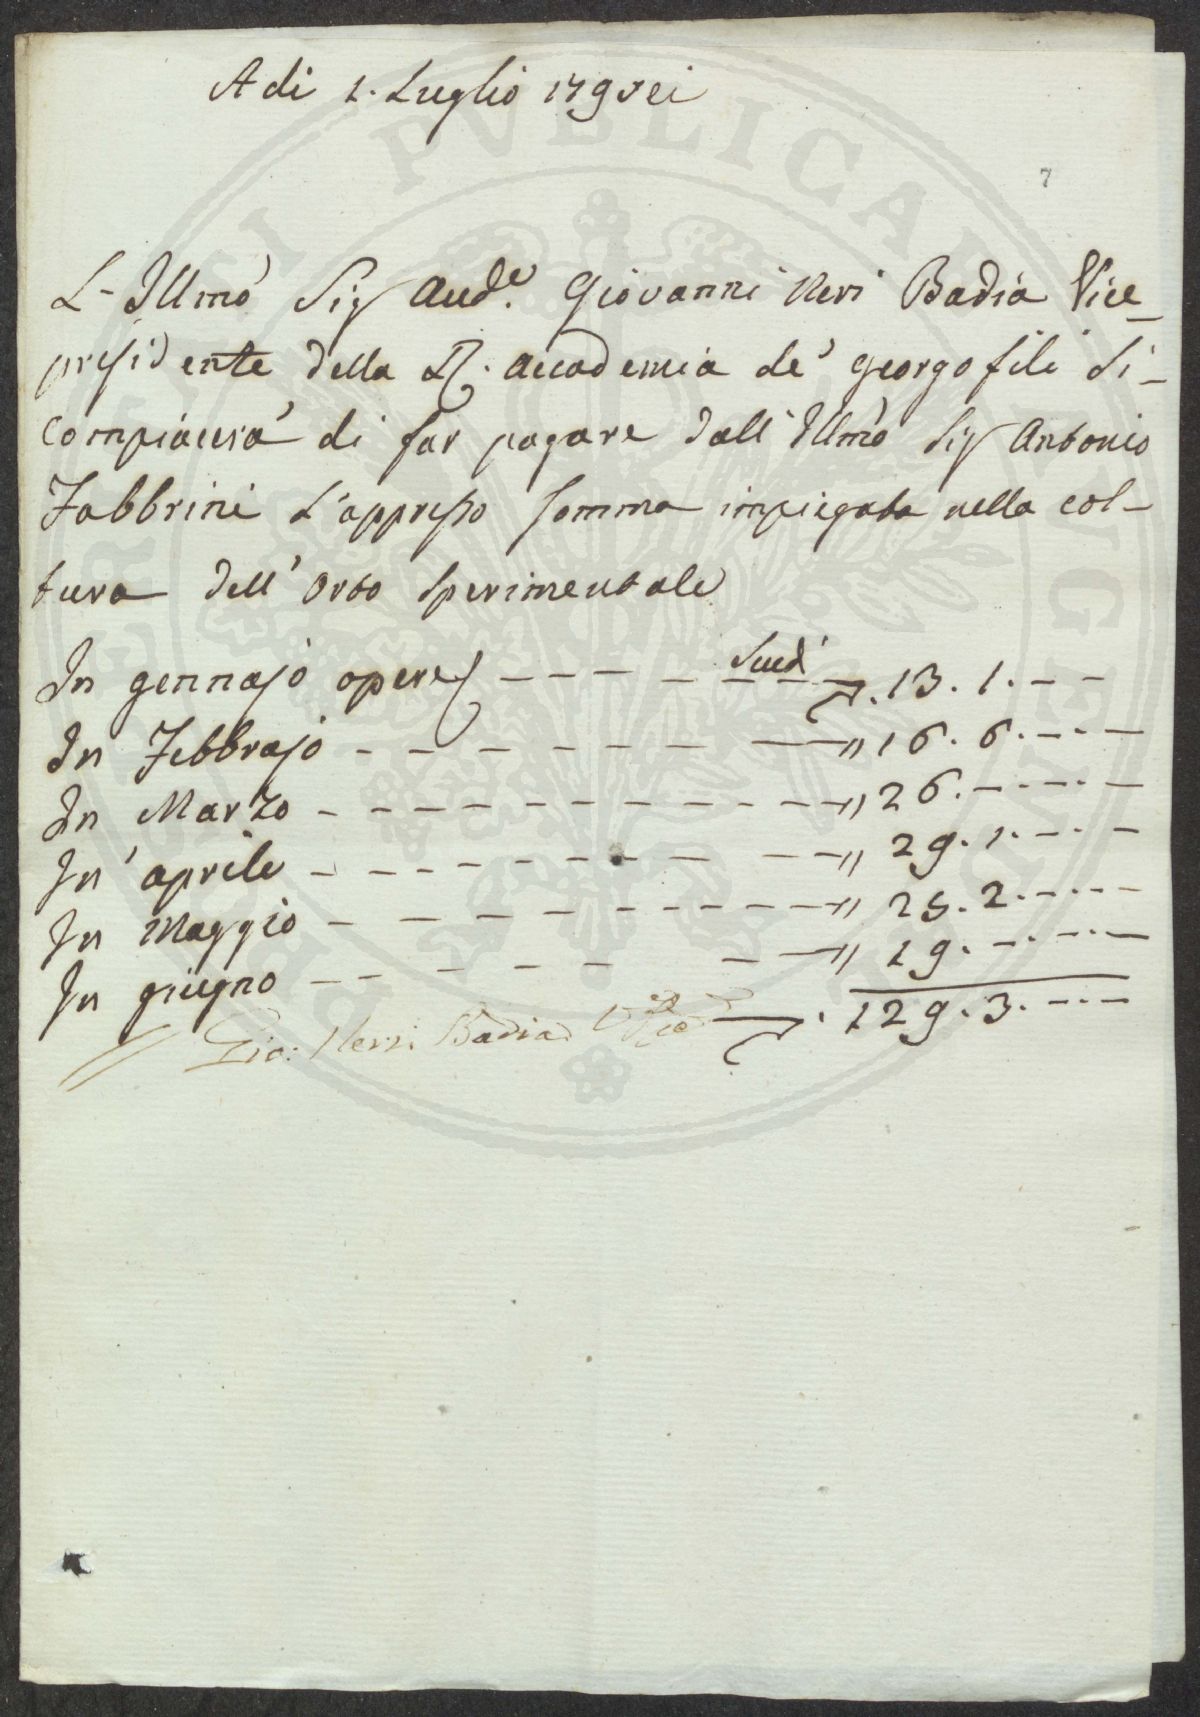 A di 1. Luglio 179sei
7
L'Illmo Sig Aud.e Giovanni Neri Badia Vice
presidente della R. Accademia de' Georgofili Si
compiacerà di far pagare dall'Illmo Sig Antonio
Fabbrini L'appresso somma impiegata nella col-
tura dell'orto Sperimentale
In gennajo opere Scudi 13. 1. - -
In Febbrajo - - - " 16. 6. - - -
In Marzo - - - " 26. - - - -
In aprile - - - " 29. 1. - - -
In Maggio - - - " 25. 2. - - - -
In giugno - - - " 19. - - - -
Gio: Neri Badia 129. 3. - - -
PUBLICAE